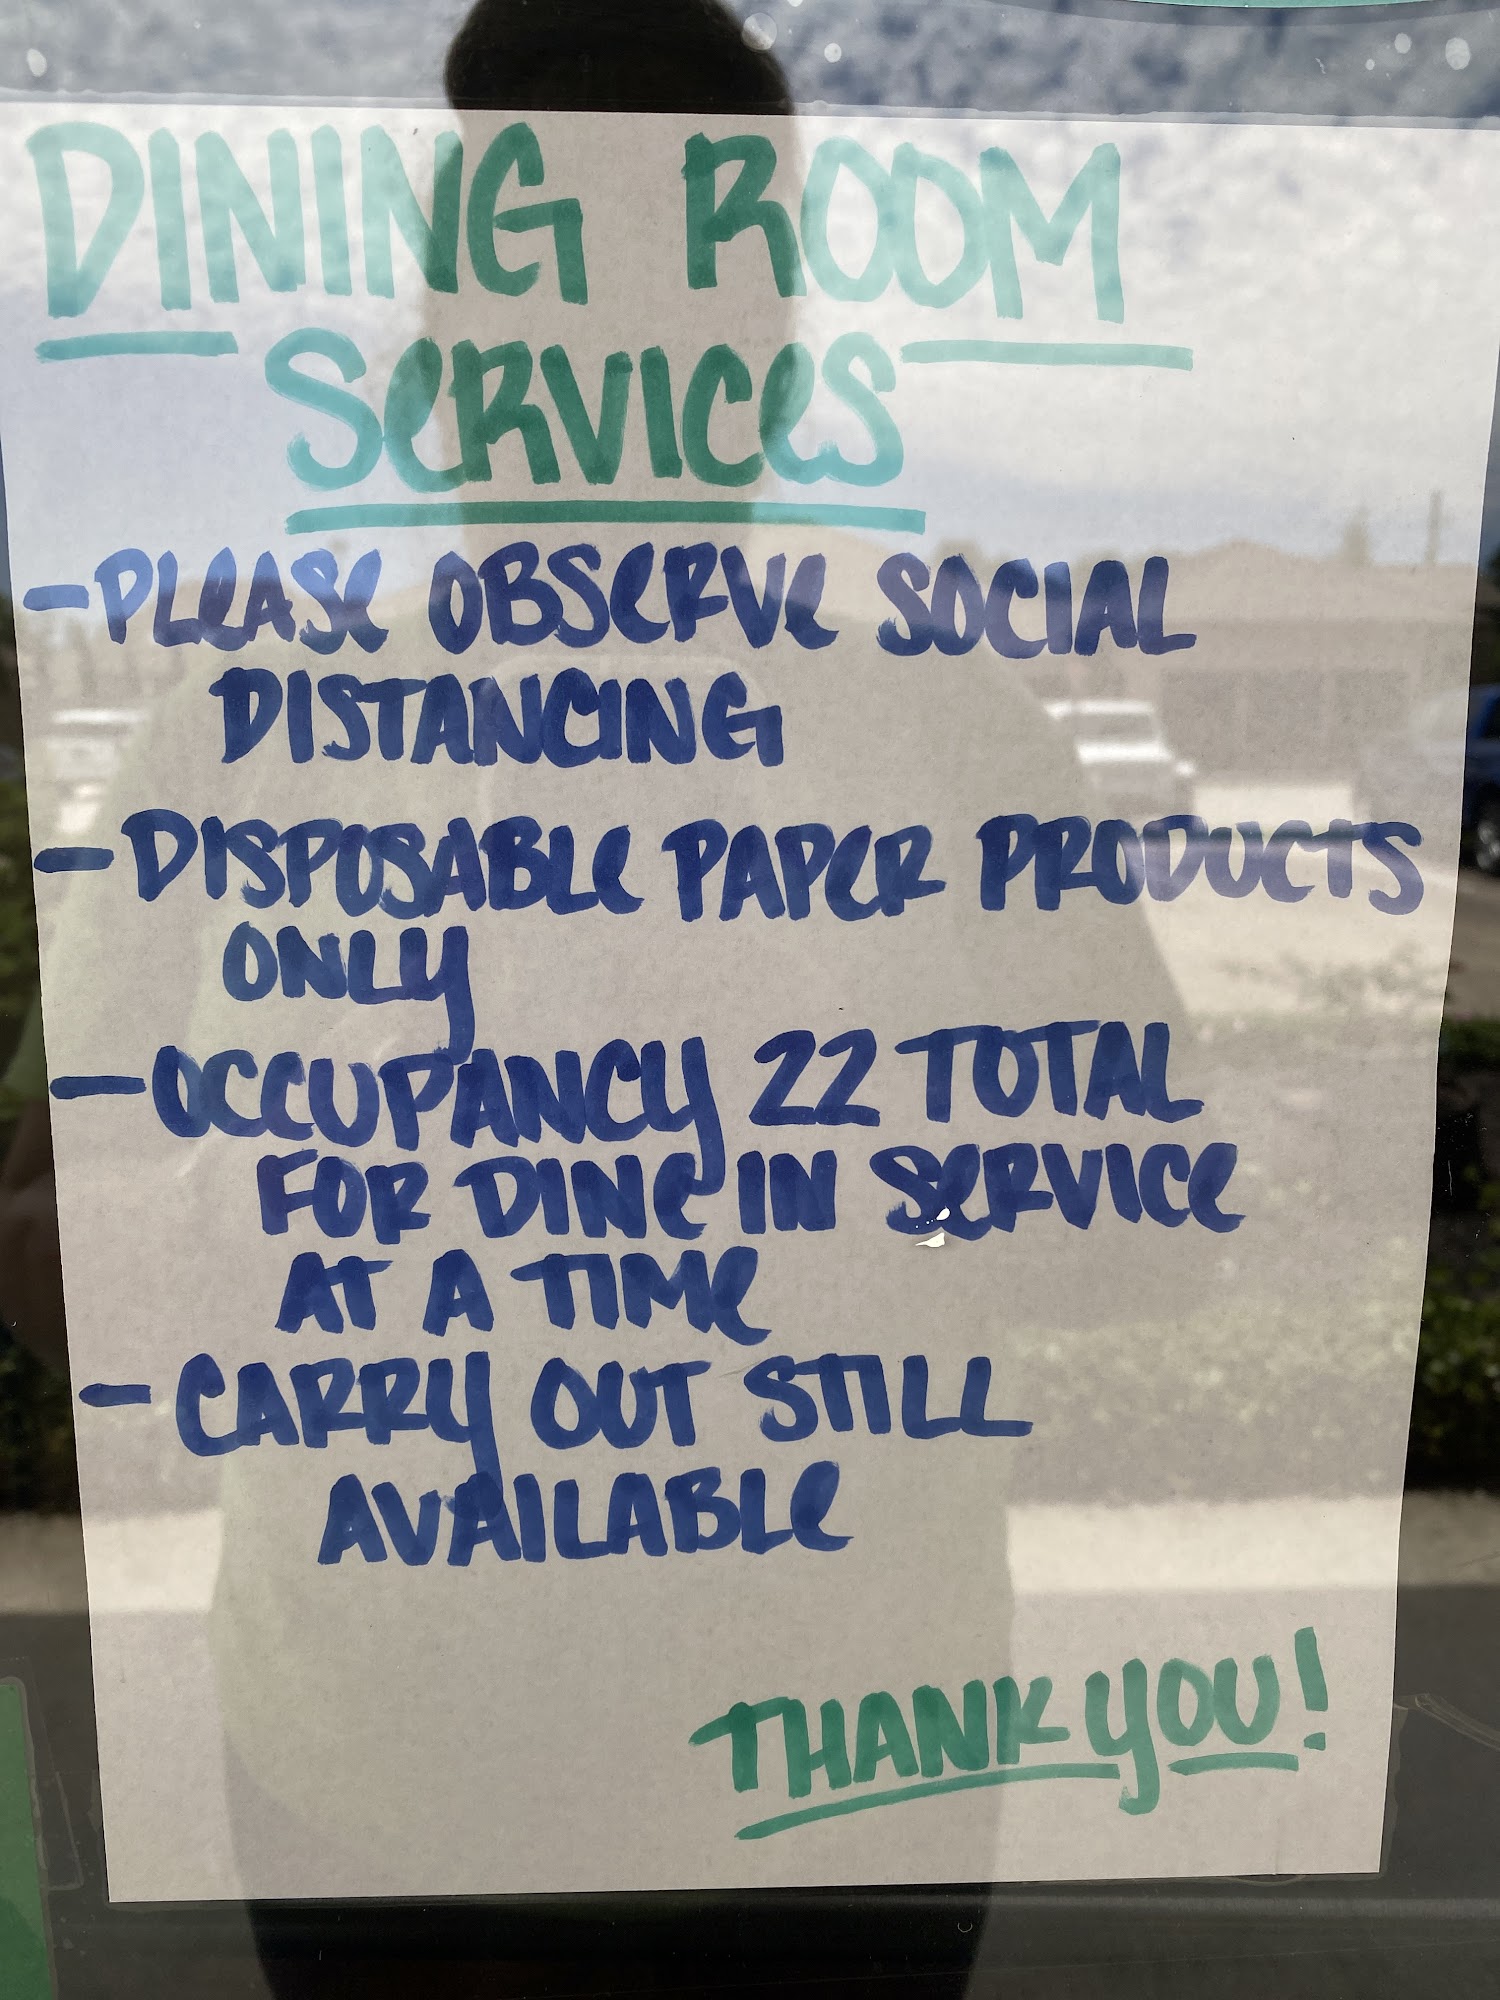 DINING ROOM
SERVICES
- PLEASE OBSERVE SOCIAL
DISTANCING
- DISPOSABLE PAPER PRODUCTS
ONLY
- OCCUPANCY 22 TOTAL
FOR DINE IN SERVICE
AT A TIME
- CARRY OUT STILL
AVAILABLE
THANK YOU!